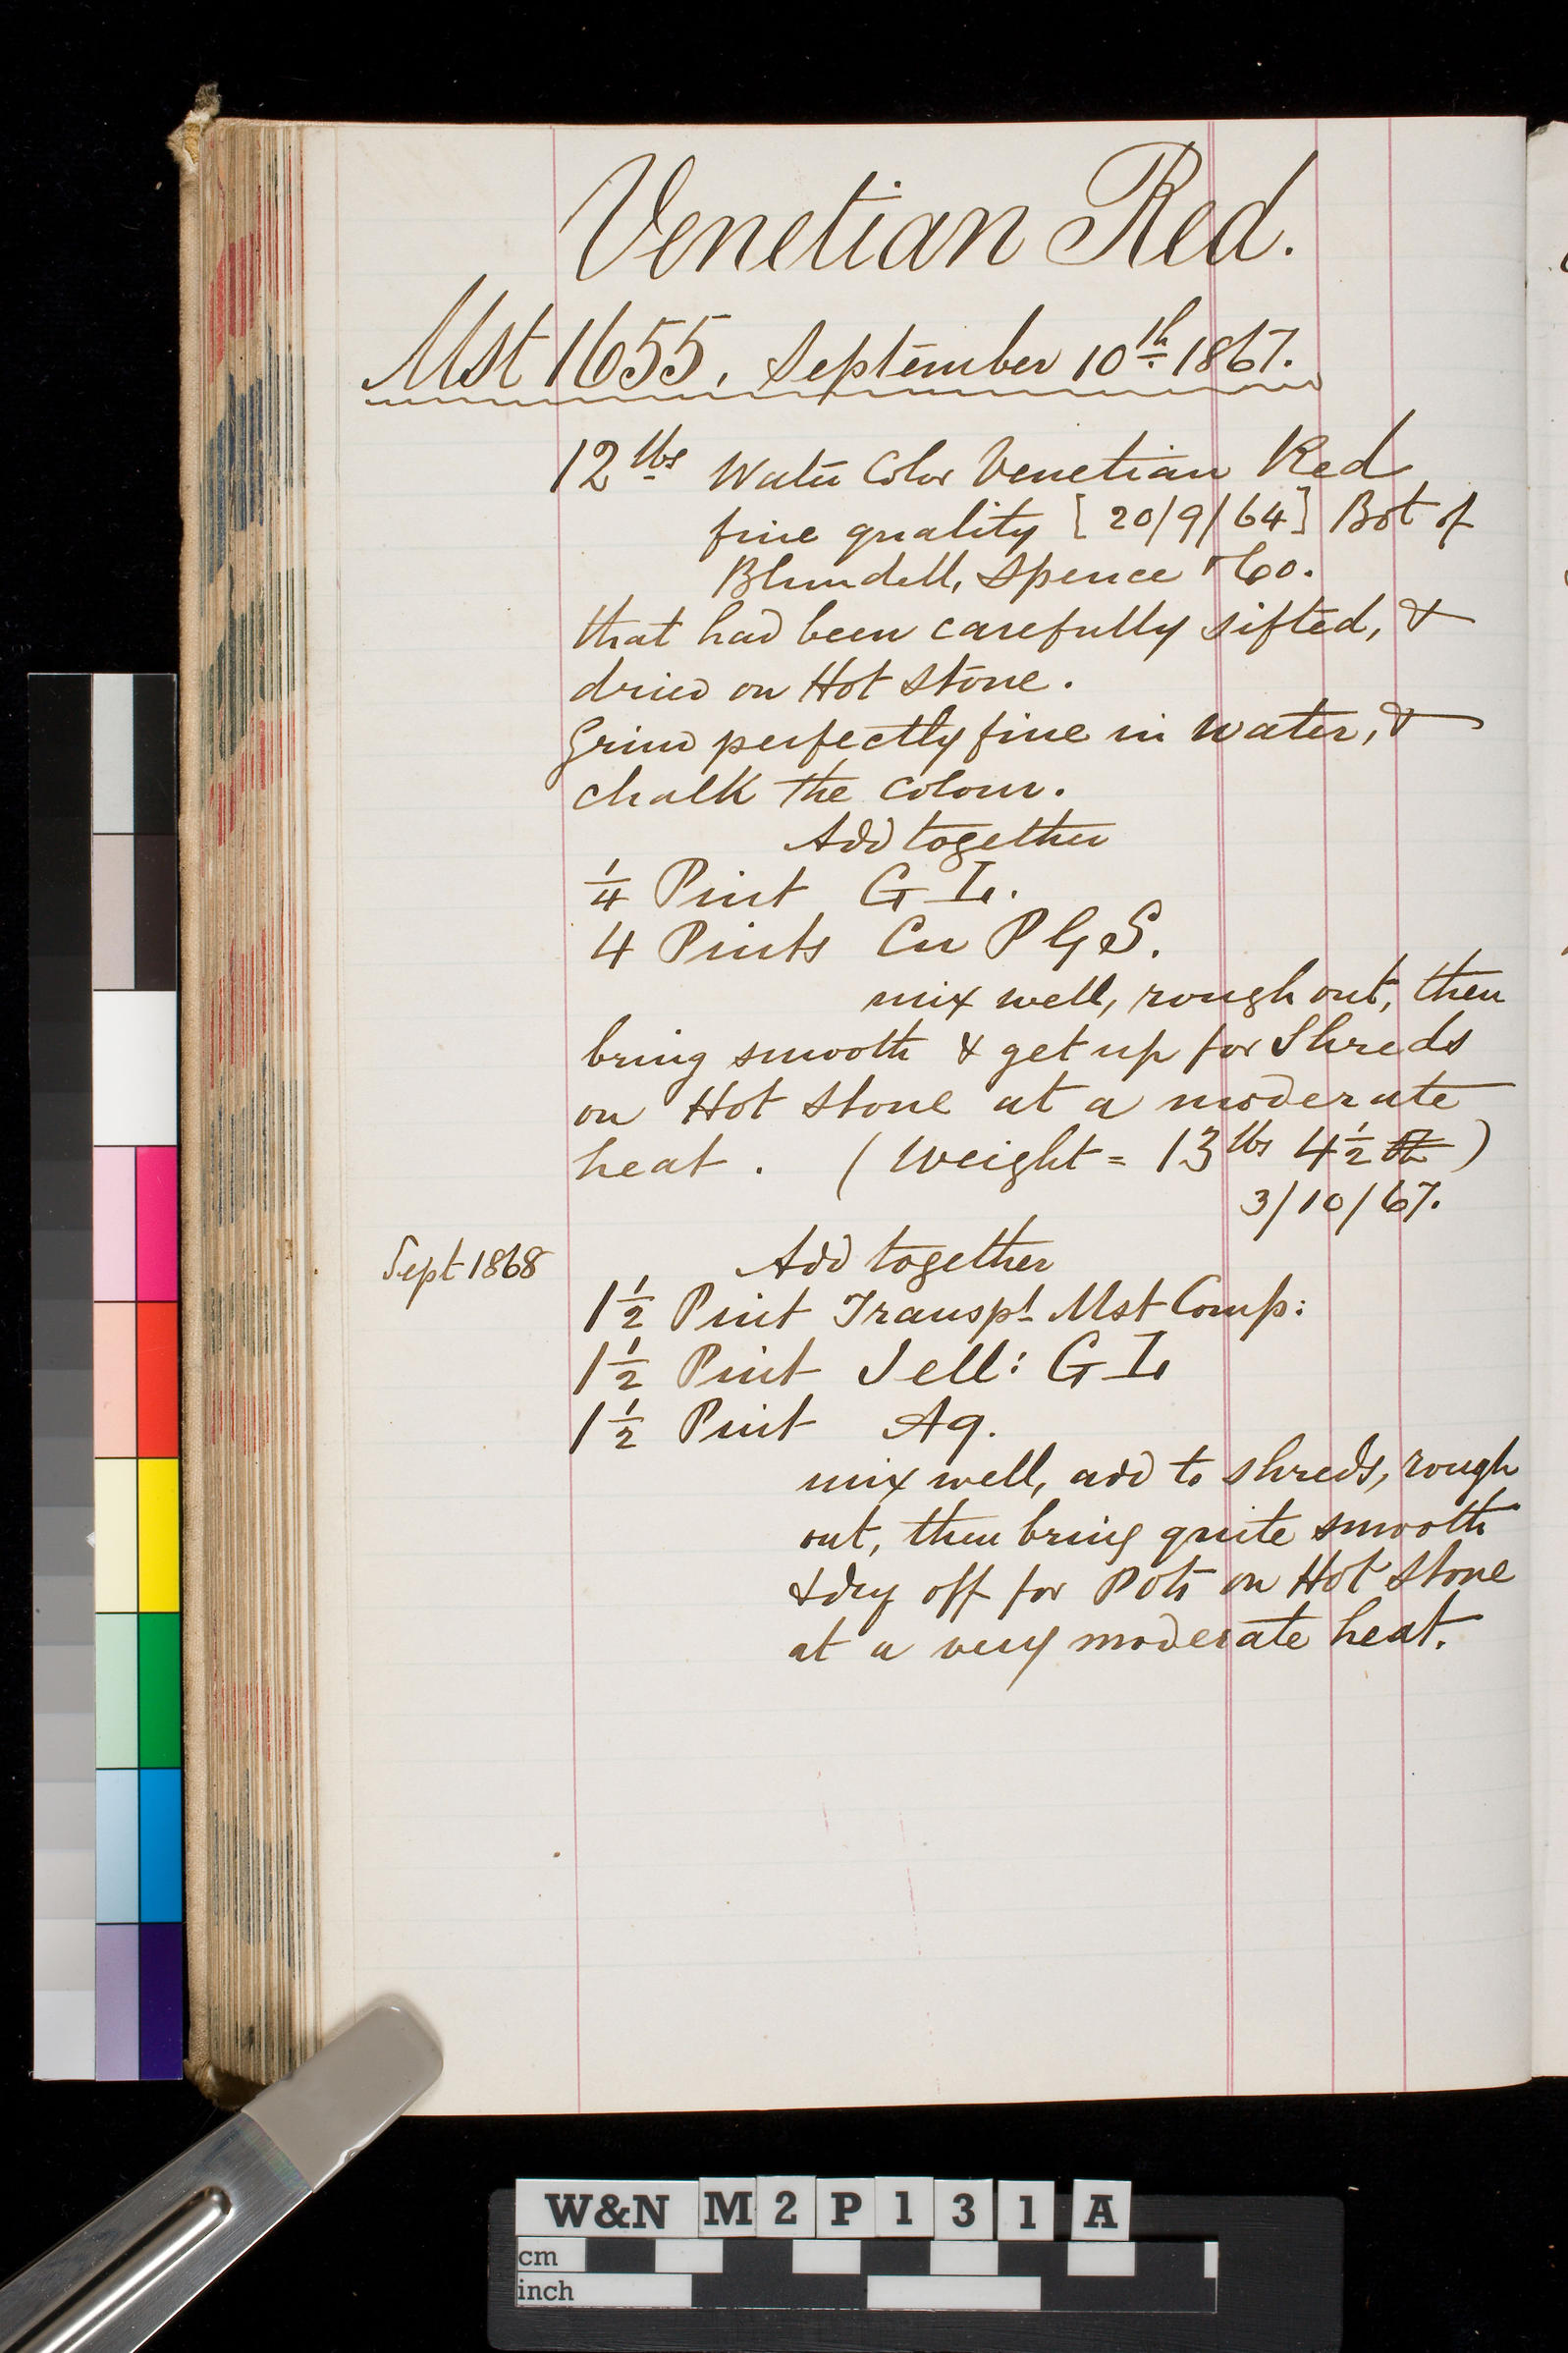 Venetian Red.
Mst 1655, September 10th 1867.
12 lbs Water Color Venetian Red
fine quality [20/9/64] Bot of
Blundell, Spence & Co.
that had been carefully sifted, &
dried on Hot Stone.
Grind perfectly fine in water, &
chalk the colour.
Add together
1/4 Pint G L.
4 Pints Cu P G S.
mix well, rough out, then
bring smooth & get up for Shreds
on Hot Stone at a moderate
heat. (Weight = 13 lbs 4 1/2 )
3/10/67.
Sept 1868 Add together
1 1/2 Pint Transpt Mst Comp:
1 1/2 Pint Jell: G L
1 1/2 Pint Aq.
mix well, add to shreds, rough
out, then bring quite smooth
& dry off for Pots on Hot Stone
at a very moderate heat.
W&N M2P131A
cm
inch